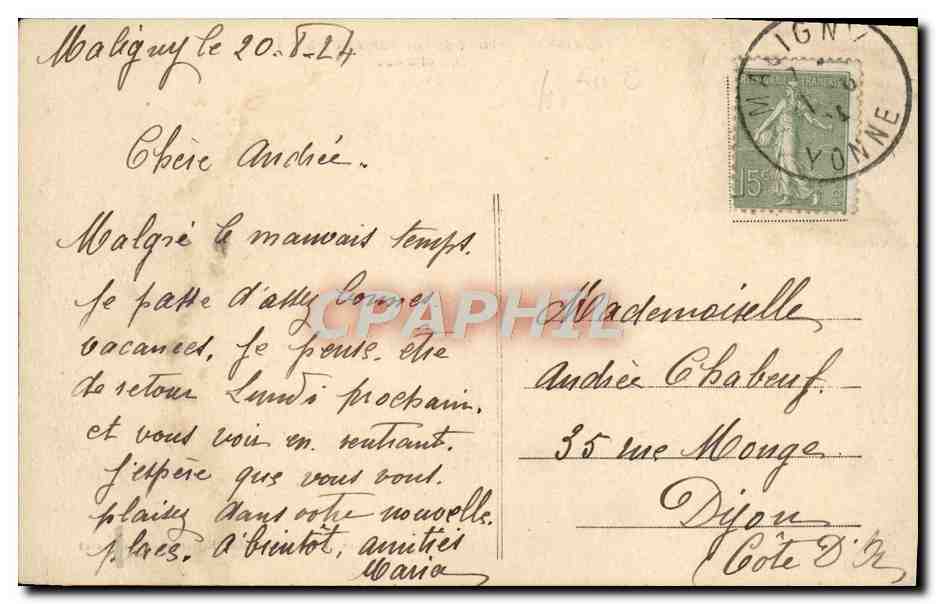 Maligny le 20-8-24
Chère Andrée.
Malgré le mauvais temps.
je passe d'assez bonnes
vacances. Je pense être
de retour Lundi prochain.
et vous voir en rentrant.
J'espère que vous vous
plaisez dans votre nouvelle
place. A bientôt, amitiés
Maria
MALIGNY
YONNE
15c
CPAPHIL
Mademoiselle
Andrée Chabeuf.
35 rue Monge
Dijon
(Côte D'Or)